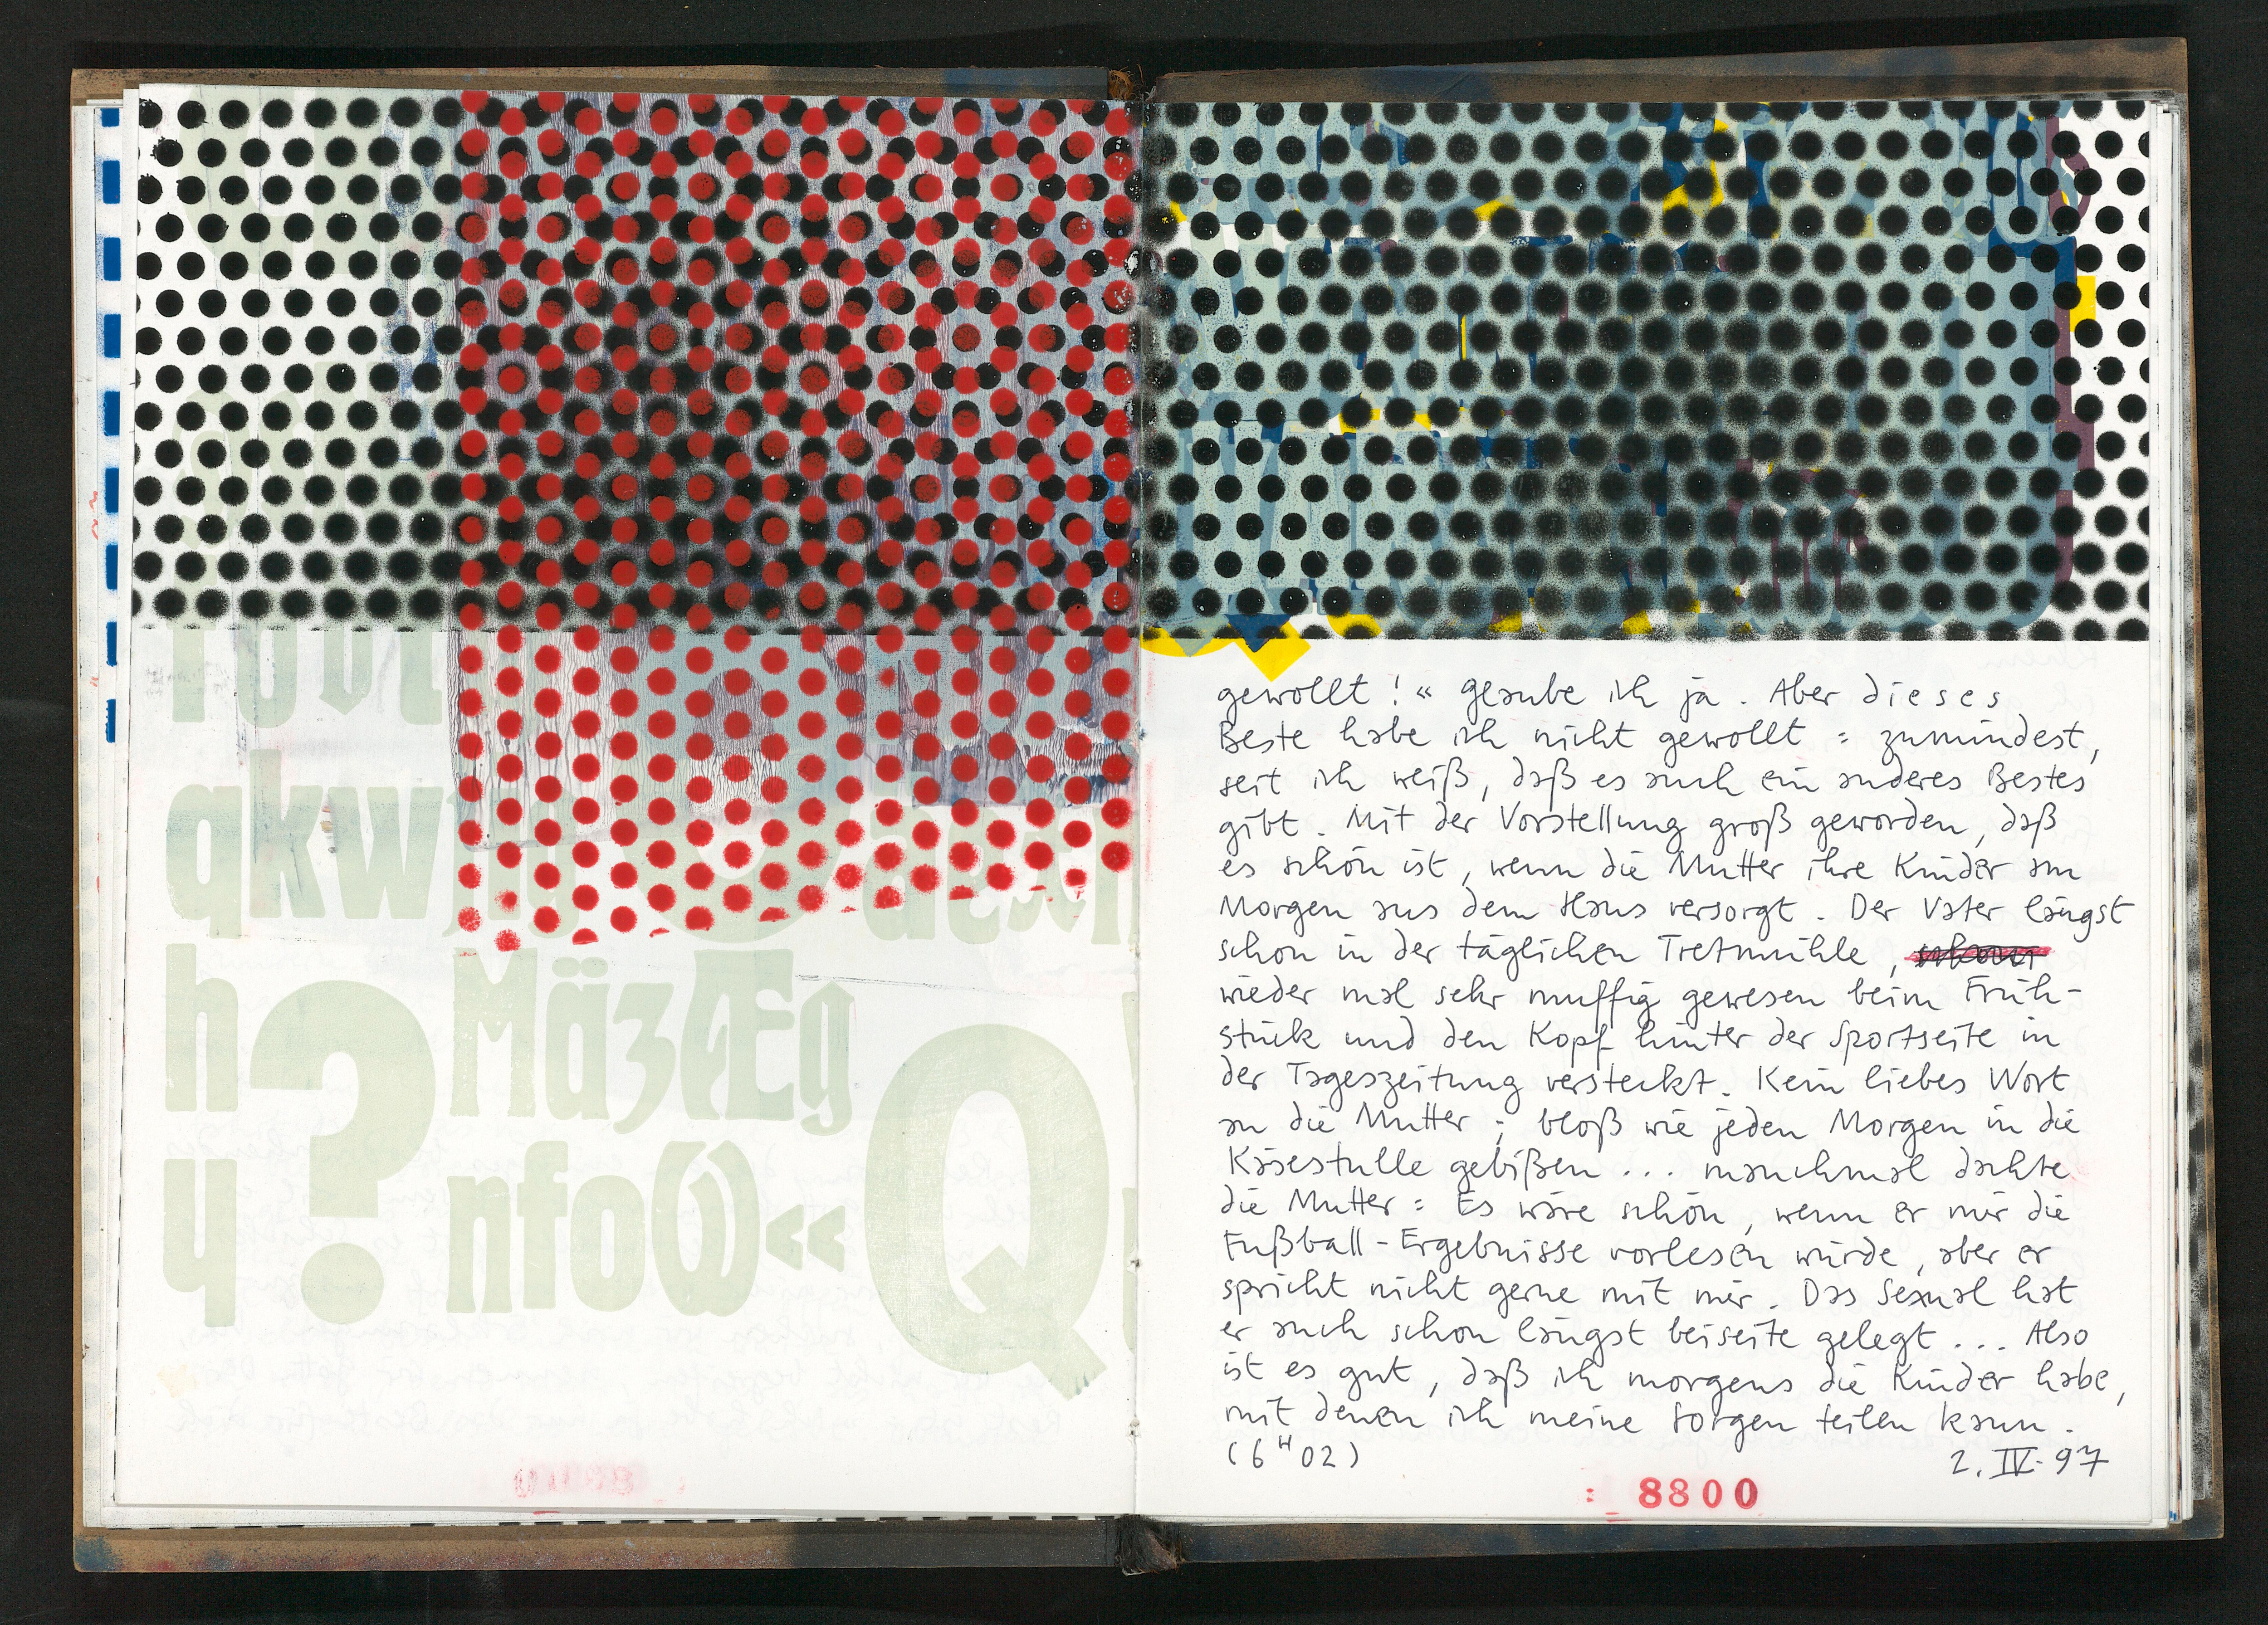 qkw
h ? MäzÆg
y nfoW« Q
gewollt!« Glaube ich ja. Aber dieses
Beste habe ich nicht gewollt: zumindest,
seit ich weiß, daß es auch ein anderes Bestes
gibt. Mit der Vorstellung groß geworden, daß
es schön ist, wenn die Mutter ihre Kinder am
Morgen aus dem Haus versorgt. Der Vater längst
schon in der täglichen Tretmühle,
wieder mal sehr muffig gewesen beim Früh-
stück und den Kopf hinter der Sportseite in
der Tageszeitung versteckt. Kein liebes Wort
an die Mutter; bloß wie jeden Morgen in die
Käsestulle gebißen... manchmal dachte
die Mutter: Es wäre schön, wenn er mir die
Fußball-Ergebnisse vorlesen würde, aber er
spricht nicht gerne mit mir. Das Sexual hat
er auch schon längst beiseite gelegt... Also
ist es gut, daß ich morgens die Kinder habe,
mit denen ich meine Sorgen teilen kann.
(6H02) 2.IV.97
: 8800